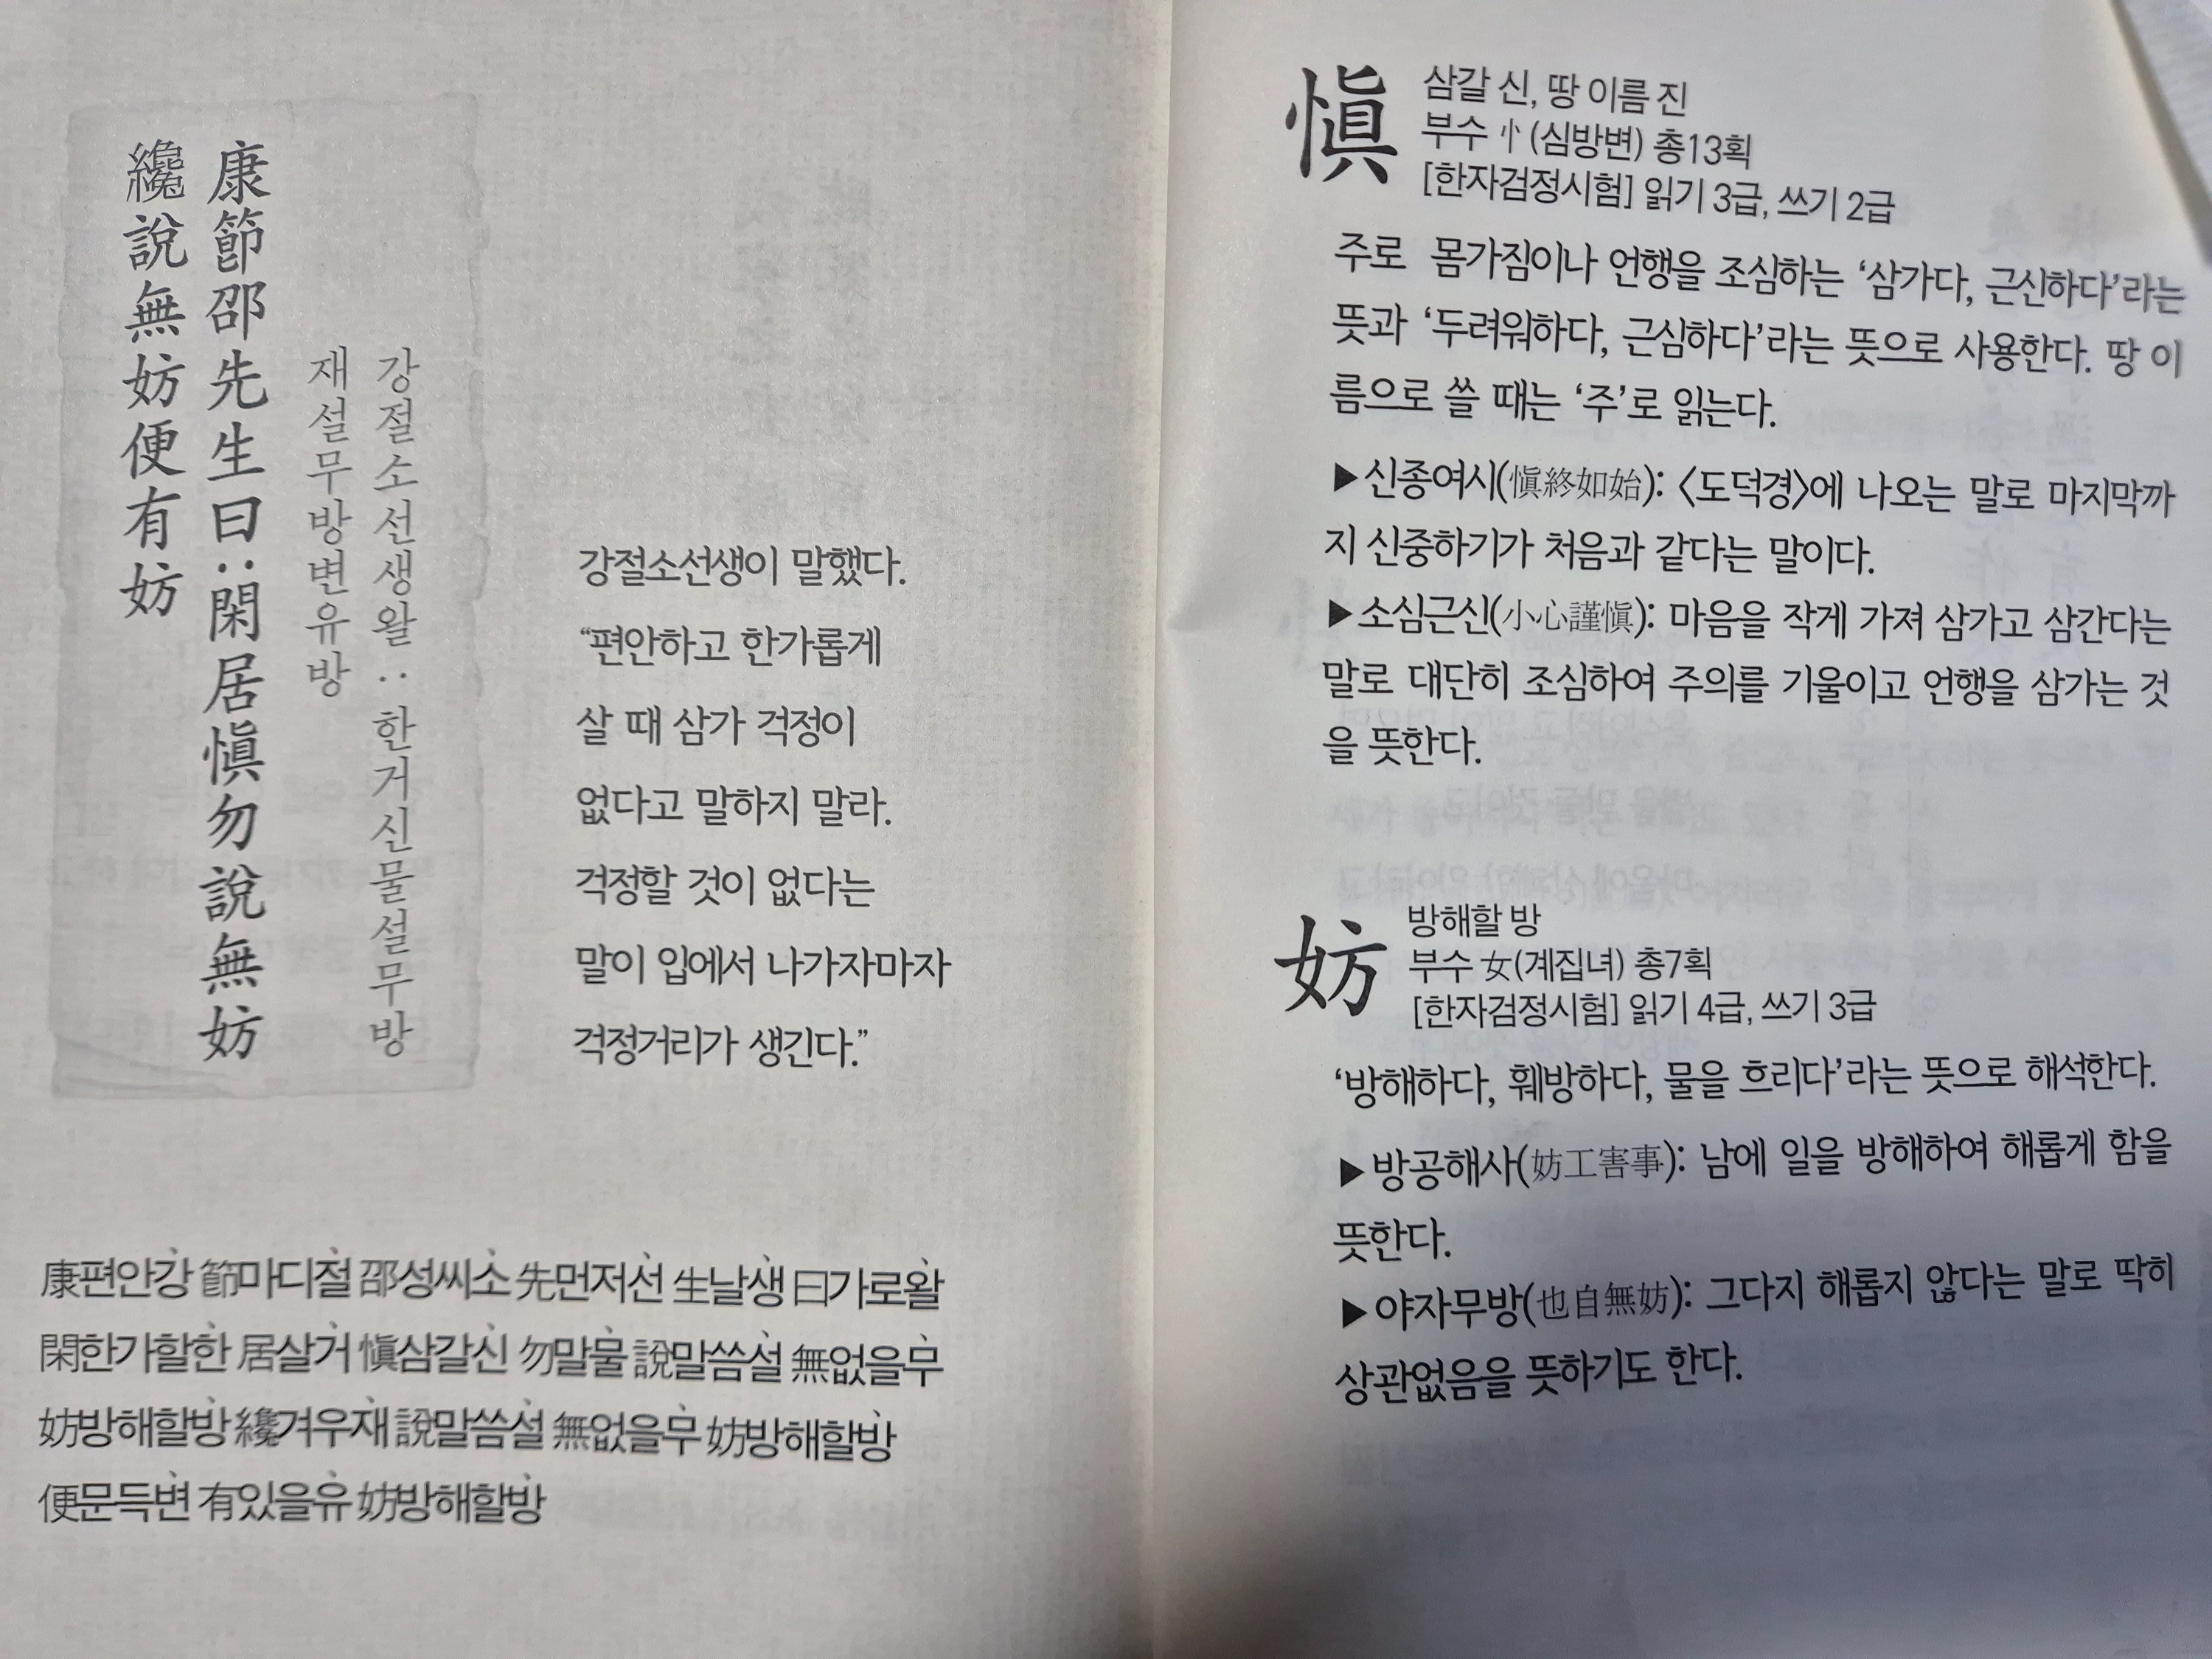 康節邵先生曰:閑居愼勿說無妨
纔說無妨便有妨
강절소선생왈:한거신물설무방
재설무방변유방
강절소선생이 말했다.
“편안하고 한가롭게
살 때 삼가 걱정이
없다고 말하지 말라.
걱정할 것이 없다는
말이 입에서 나가자마자
걱정거리가 생긴다.”
康편안강 節마디절 邵성씨소 先먼저선 生날생 曰가로왈
閑한가할한 居살거 愼삼갈신 勿말물 說말씀설 無없을무
妨방해할방 纔겨우재 說말씀설 無없을무 妨방해할방
便문득변 有있을유 妨방해할방
愼
삼갈 신, 땅 이름 진
부수 忄(심방변) 총13획
[한자검정시험] 읽기 3급, 쓰기 2급
주로 몸가짐이나 언행을 조심하는 ‘삼가다, 근신하다’라는
뜻과 ‘두려워하다, 근심하다’라는 뜻으로 사용한다. 땅 이
름으로 쓸 때는 ‘주’로 읽는다.
▶신종여시(愼終如始): 〈도덕경〉에 나오는 말로 마지막까
지 신중하기가 처음과 같다는 말이다.
▶소심근신(小心謹愼): 마음을 작게 가져 삼가고 삼간다는
말로 대단히 조심하여 주의를 기울이고 언행을 삼가는 것
을 뜻한다.
妨
방해할 방
부수 女(계집녀) 총7획
[한자검정시험] 읽기 4급, 쓰기 3급
‘방해하다, 훼방하다, 물을 흐리다’라는 뜻으로 해석한다.
▶방공해사(妨工害事): 남에 일을 방해하여 해롭게 함을
뜻한다.
▶야자무방(也自無妨): 그다지 해롭지 않다는 말로 딱히
상관없음을 뜻하기도 한다.